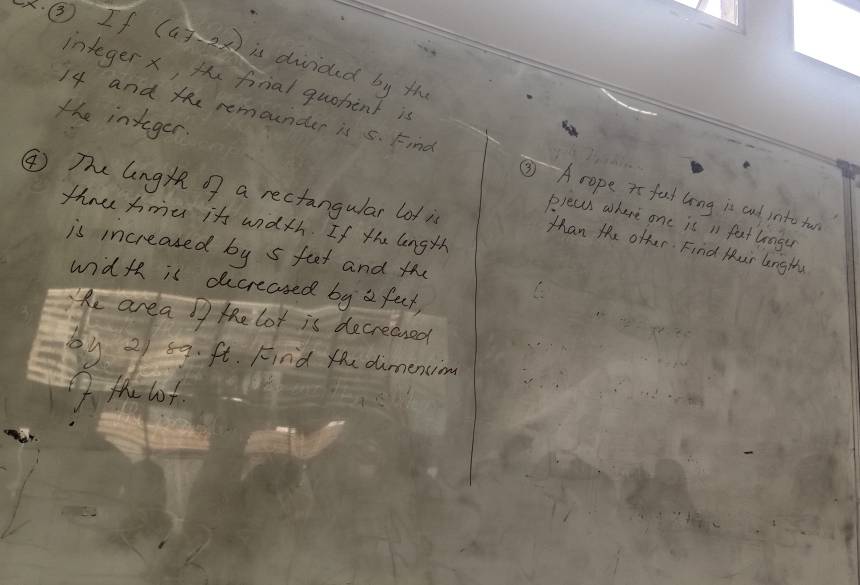 Ex. ③ If (47-2x) is divided by the
integer x, the final quotient is
14 and the remainder is 5. Find
the integer.
④ The length of a rectangular lot is
three times its width. If the length
is increased by 5 feet and the
width is decreased by 2 feet,
the area of the lot is decreased
by 21 sq. ft. Find the dimensions
of the lot.
③ A rope 75 feet long is cut into two
pieces where one is 11 feet longer
than the other. Find their lengths.